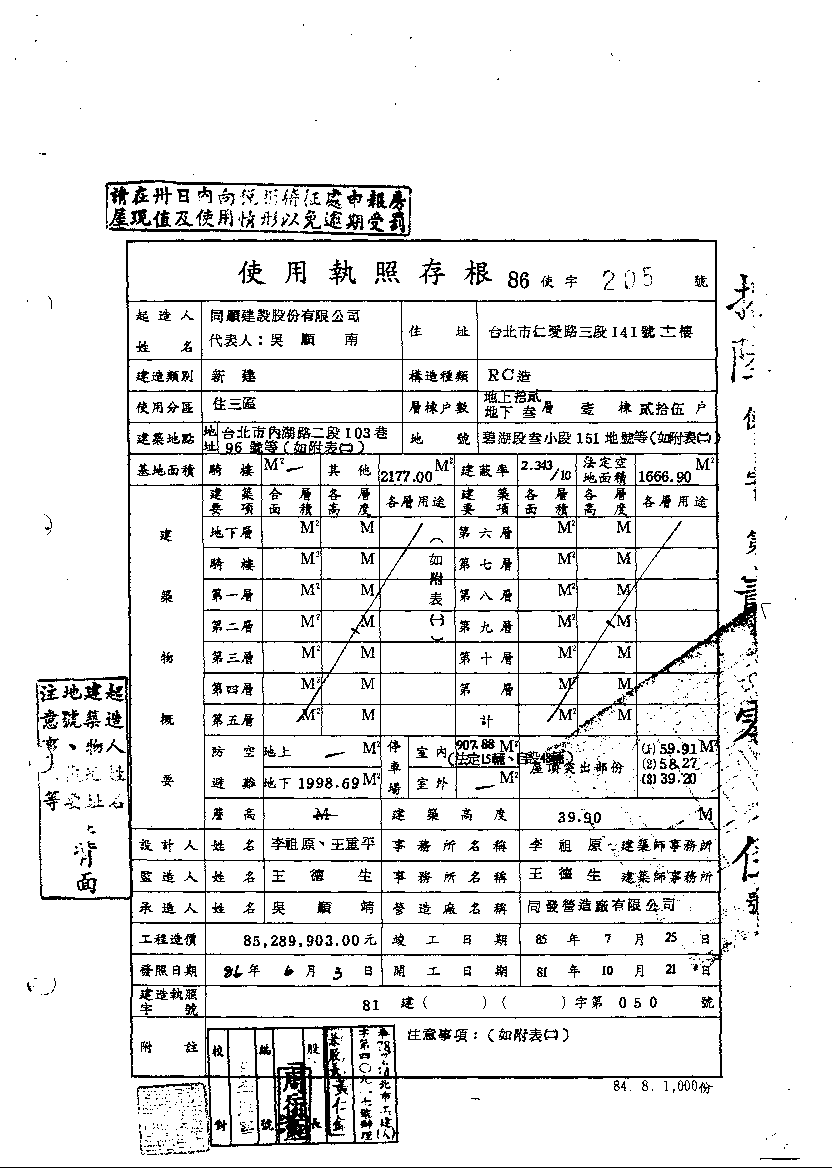 請在卅日內向稅捐稽征處申報房
屋現值及使用情形以免逾期受罰
使用執照存根 86 使字 205 號
起造人姓名 同順建設股份有限公司 代表人：吳順南 住址 台北市仁愛路三段141號十二樓
建造類別 新建 構造種類 RC造
使用分區 住三區 層棟戶數 地上拾貳 地下叁 層 壹 棟 貳拾伍 戶
建築地點 地址 台北市內湖路二段103巷96號等(如附表㈡) 地號 碧湖段叁小段151地號等(如附表㈡)
基地面積 騎樓 M² 其他 2177.00 M² 建蔽率 2.343/10 法定空地面積 1666.90 M²
建築物概要
建築要項 合層面積 各層高度 各層用途 建築要項 各層面積 各層高度 各層用途
地下層 M² M (如附表㈠) 第六層 M² M
騎樓 M² M 第七層 M² M
第一層 M² M 第八層 M² M
第二層 M² M 第九層 M² M
第三層 M² M 第十層 M² M
第四層 M² M 第 層 M² M
第五層 M² M 計 M² M
防空避難 地上 M² 地下 1998.69 M² 停車場 室內 907.88 M² 室外 M² 屋頂突出部份 (1)59.91 M² (2)58.27 (3)39.20
層高 M 建築高度 39.90 M
設計人 姓名 李祖原、王重平 事務所名稱 李祖原 建築師事務所
監造人 姓名 王德生 事務所名稱 王德生 建築師事務所
承造人 姓名 吳順靖 營造廠名稱 同發營造廠有限公司
工程造價 85,289,903.00元 竣工日期 85年7月25日
發照日期 86年6月3日 開工日期 81年10月21日
建造執照字號 81 建( )( )字第 050 號
附註 注意事項：(如附表㈡)
校對 編號 股長
84. 8. 1,000份
起造人姓名
建築物地址
地號、
注意事 等
背面